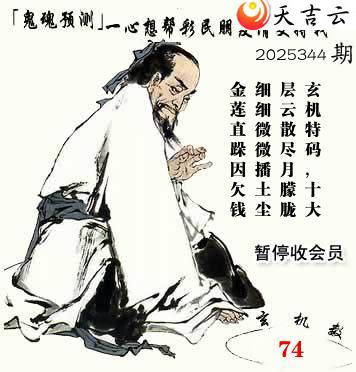 天吉云
「鬼魂预测」一心想帮彩民朋
2025344 期
玄机特码,十大
层云散尽月朦胧
细细微微播土尘
金莲直跺因欠钱
暂停收会员
玄 机
74